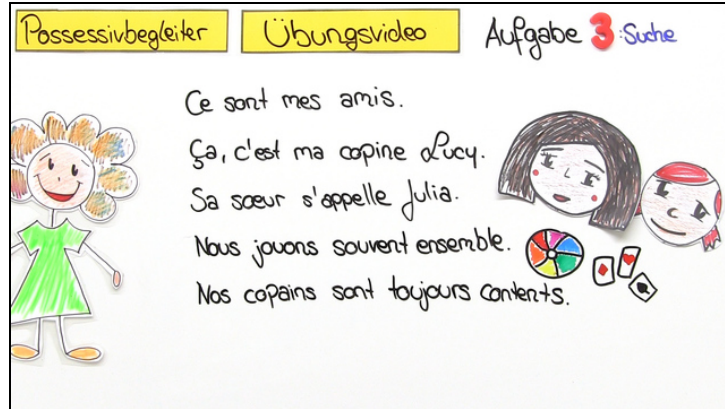 Possessivbegleiter Übungsvideo Aufgabe 3: Suche
Ce sont mes amis.
Ça, c'est ma copine Lucy.
Sa sœur s'appelle Julia.
Nous jouons souvent ensemble.
Nos copains sont toujours contents.